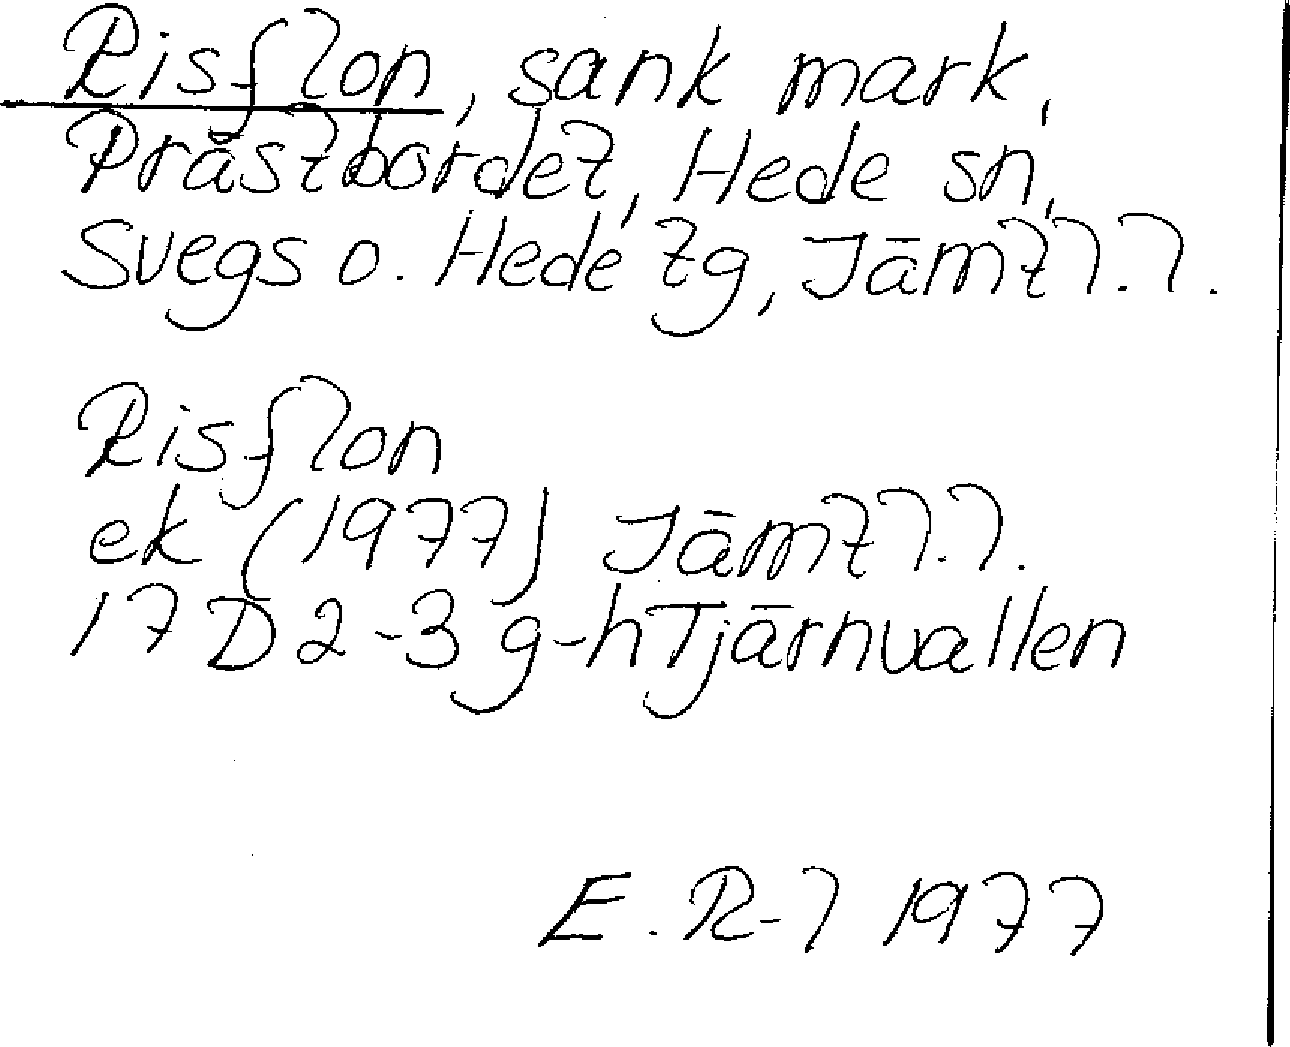 Risflon, sank mark,
Prästbordet, Hede sn,
Svegs o. Hede tg, Jämtl.l.
Risflon
ek (1977) Jämtl.l.
17D2-3g-h Tjärnvallen
E.R-l 1977